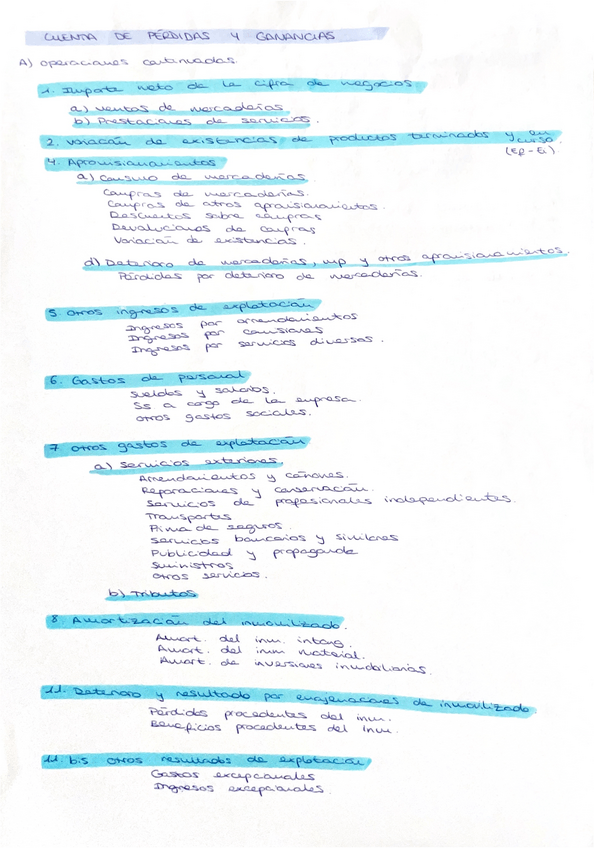 CUENTA DE PÉRDIDAS Y GANANCIAS
A) Operaciones continuadas
1. Importe neto de la cifra de negocios.
a) Ventas de mercaderías
b) Prestaciones de servicios.
2. Variación de existencias de productos terminados y en curso.
(Ef - Ei).
4. Aprovisionamientos
a) Consumo de mercaderías.
Compras de mercaderías.
Compras de otros aprovisionamientos.
Descuentos sobre compras
Devoluciones de compras
Variación de existencias.
d) Deterioro de mercaderías, mp y otros aprovisionamientos.
Pérdidas por deterioro de mercaderías.
5. Otros ingresos de explotación
Ingresos por arrendamientos
Ingresos por comisiones
Ingresos por servicios diversos.
6. Gastos de personal
Sueldos y salarios.
SS a cargo de la empresa.
Otros gastos sociales.
7 Otros gastos de explotación
a) Servicios exteriores.
Arrendamientos y cánones.
Reparaciones y conservación.
Servicios de profesionales independientes.
Transportes
Prima de seguros.
Servicios bancarios y similares
Publicidad y propaganda
Suministros
Otros servicios.
b) Tributos
8 Amortización del inmovilizado.
Amort. del inm. intang.
Amort. del inm material.
Amort. de inversiones inmobiliarias.
11. Deterioro y resultado por enajenaciones de inmovilizado
Pérdidas procedentes del inm.
Beneficios procedentes del Inm.
11 bis Otros resultados de explotación
Gastos excepcionales
Ingresos excepcionales.